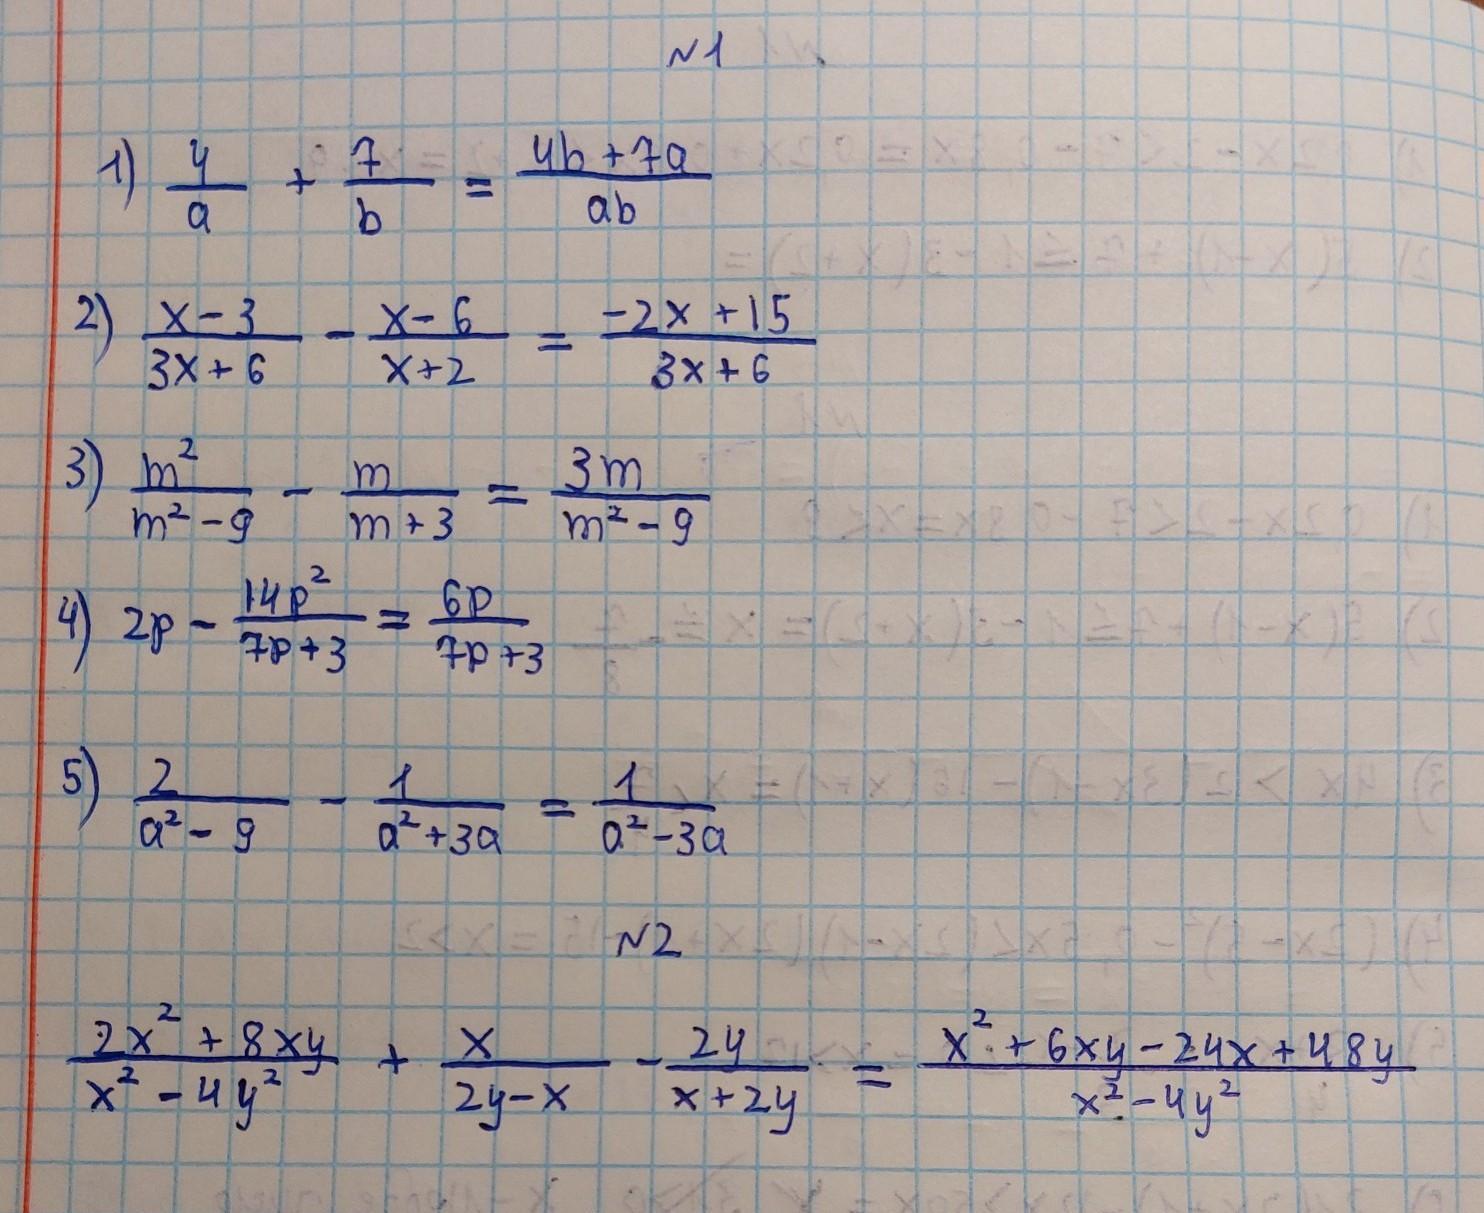 №1
1) 4/a + 7/b = (4b+7a)/(ab)
2) (x-3)/(3x+6) - (x-6)/(x+2) = (-2x+15)/(3x+6)
3) m²/(m²-9) - m/(m+3) = 3m/(m²-9)
4) 2p - 14p²/(7p+3) = 6p/(7p+3)
5) 2/(a²-9) - 1/(a²+3a) = 1/(a²-3a)
№2
(2x²+8xy)/(x²-4y²) + x/(2y-x) - 2y/(x+2y) = (x²+6xy-24x+48y)/(x²-4y²)